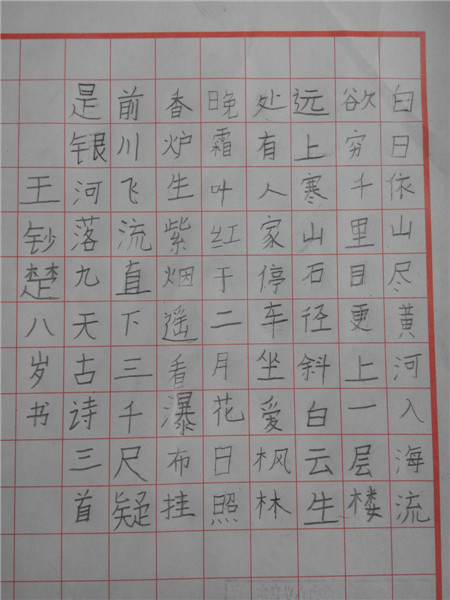 白日依山尽黄河入海流
欲穷千里目更上一层楼
远上寒山石径斜白云生
处有人家停车坐爱枫林
晚霜叶红于二月花日照
香炉生紫烟遥看瀑布挂
前川飞流直下三千尺疑
是银河落九天古诗三首
王钞楚八岁书